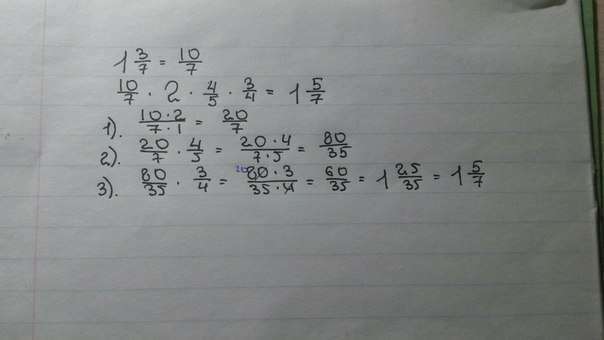 1 3/7 = 10/7
10/7 · 2 · 4/5 · 3/4 = 1 5/7
1). 10·2/7·1 = 20/7
2). 20/7 · 4/5 = 20·4/7·5 = 80/35
3). 80/35 · 3/4 = 20 80·3/35·4 = 60/35 = 1 25/35 = 1 5/7